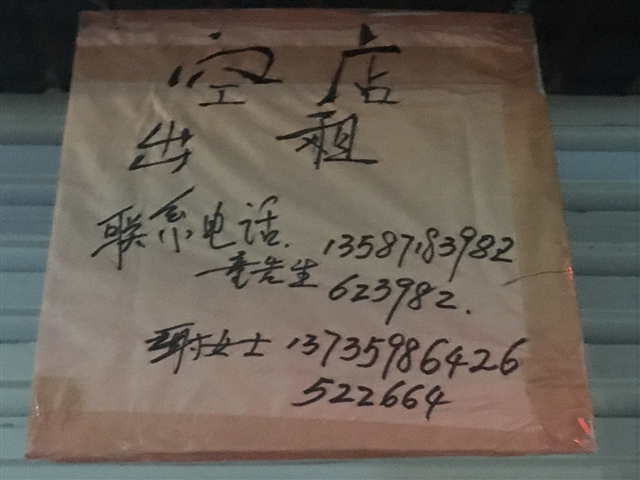 空店
出租
联系电话. 13587183982
童先生 623982.
谢女士 13735986426
522664